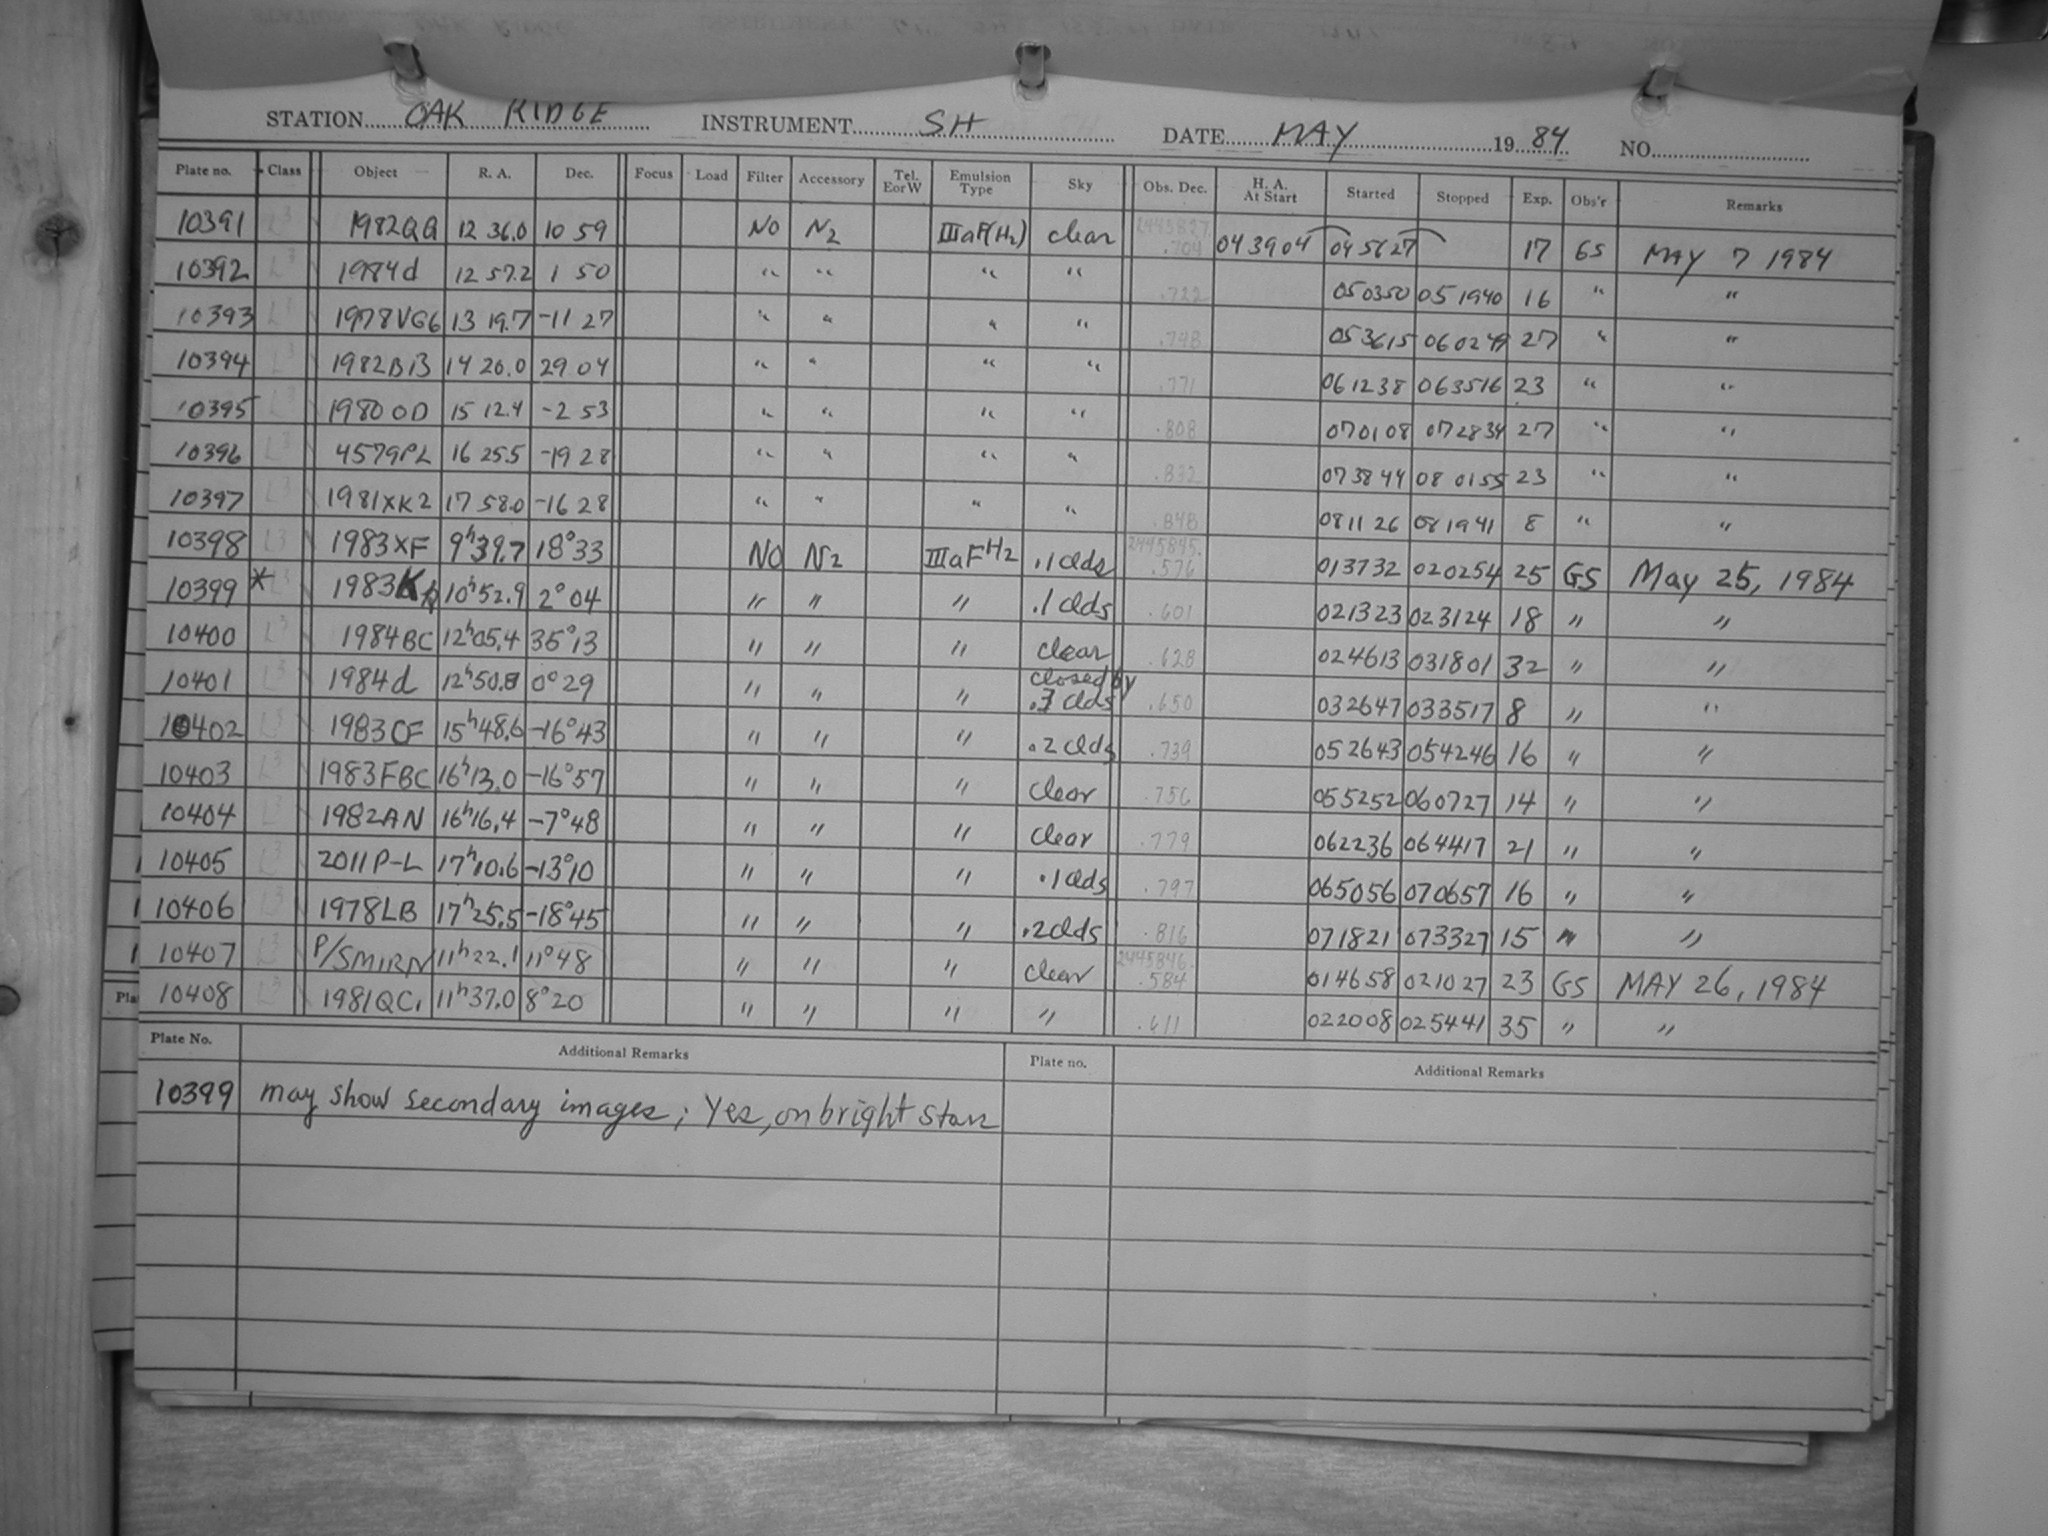 STATION OAK RIDGE INSTRUMENT SH DATE MAY 19 84 NO.
Plate no. Class Object R. A. Dec. Focus Load Filter Accessory Tel. EorW Emulsion Type Sky Obs. Dec. H. A. At Start Started Stopped Exp. Obs'r Remarks
10391 L3 1982QQ 12 36.0 10 59 NO N2 IIIaF(H2) clear 2445827 .704 043904 045627 17 GS MAY 7 1984
10392 L3 1984d 12 57.2 1 50 " " " " .722 050350 051940 16 " "
10393 L3 1978VG6 13 19.7 -11 27 " " " " .748 053615 060249 27 " "
10394 L3 14 20.0 29 04 " " " " .771 061238 063516 23 " "
10395 L3 1980 OD 15 12.4 -2 53 " " " " .808 070108 072834 27 " "
10396 L3 4579PL 16 25.5 -19 28 " " " " .832 073844 080155 23 " "
10397 L3 1981XK2 17 58.0 -16 28 " " " " .848 081126 081941 8 " "
10398 L3 1983XF 9h39.7 18°33 NO N2 IIIaF H2 .1 clds 2445845. .576 013732 020254 25 GS May 25, 1984
10399 * L3 10h52.9 2°04 " " " .1 clds .601 021323 023124 18 " "
10400 L3 1984BC 12h05.4 35°13 " " " clear .628 024613 031801 32 " "
10401 L3 1984d 12h50.8 0°29 " " " closed by .7 clds .650 032647 033517 8 " "
10402 L3 1983CF 15h48.6 -16°43 " " " .2 clds .739 052643 054246 16 " "
10403 L3 1983FBC 16h13.0 -16°57 " " " clear .756 055252 060727 14 " "
10404 L3 1982AN 16h16.4 -7°48 " " " clear .779 062236 064417 21 " "
10405 L3 2011P-L 17h10.6 -13°10 " " " .1 clds .797 065056 070657 16 " "
10406 L3 1978LB 17h25.5 -18°45 " " " .2 clds .816 071821 073327 15 " "
10407 L3 P/SMIRN 11h22.1 11°48 " " " clear 2445846. .584 014658 021027 23 GS MAY 26, 1984
10408 L3 1981QC1 11h37.0 8°20 " " " " .611 022008 025441 35 " "
Plate No. Additional Remarks Plate no. Additional Remarks
10399 may show secondary images; Yes, on bright stars